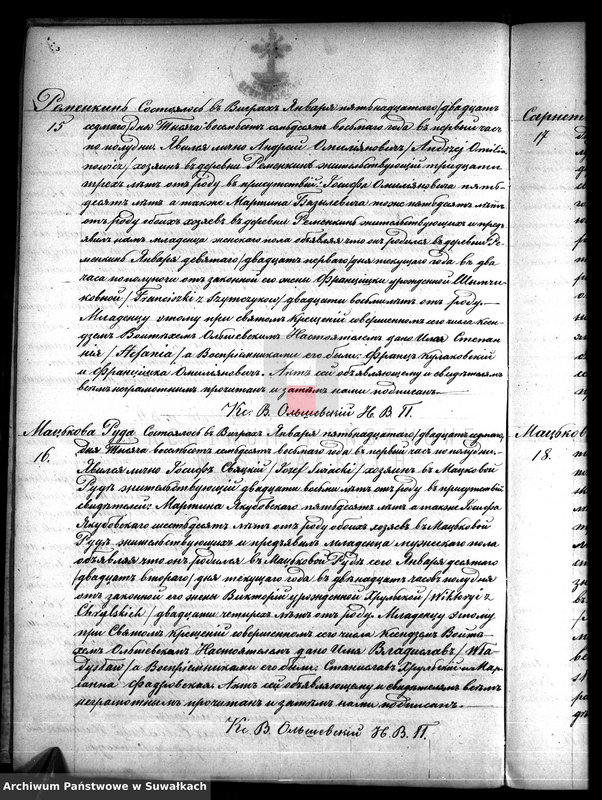 Ременкинь Состоялось въ Виграхъ Января пятьнадцатаго /двадцать
15
седмаго/ дня Тысяча восемьсотъ семьдесятъ восьмаго года въ первый часъ
по полудни. Явился лично Андрей Омиляновичъ /Andrzej Omilia
nowicz/ хозяинъ въ деревни Ременкинь жительствующій тридцати
трехъ лѣтъ отъ роду въ присутствіи: Іосифа Омиляновича пять-
десятъ лѣтъ а также Мартина Базылевича тоже пятьдесятъ лѣтъ
отъ роду обоихъ хозяевъ въ деревни Ременкинь жительствующихъ и пред
явилъ намъ младенца женскаго пола объявляя что онъ родился въ деревни Ре-
менкинь Января девятаго /двадцать перваго/ дня текущаго года въ два
часа пополуночи отъ законной его жены Францишки урожденной Шымчи-
ковной /Franciszki z Szymczyków/ двадцати восьми лѣтъ отъ роду.
Младенцу этому при святомъ крещеніи совершенномъ его числа Ксен-
дземъ Войтѣхомъ Ольшевскимъ Настоятелемъ дано имя Степан
нія /Stefania/ а Воспріемниками его были: Францъ Кулаковскій
и Францішка Омиляновичъ. Актъ сей объявляющему и свидѣтелямъ
всѣмъ неграмотнымъ прочитанъ и затѣмъ нами подписанъ.
Кс. В. Ольшевскій Н. В. П.
Мацькова Руда Состоялось въ Виграхъ Января пятьнадцатаго /двадцать седмаго/
16.
дня Тысяча восемьсотъ семьдесятъ восьмаго года въ первый часъ по полудни.
Явился лично Іосифъ Свяцкій /Józef Świacki/ хозяинъ въ Мацковой
Рудѣ жительствующій двадцати восьми лѣтъ отъ роду въ присутствіи
свидѣтелей: Мартина Якубовскаго пятьдесятъ лѣтъ а также Іосифа
Якубовскаго шестьдесятъ лѣтъ отъ роду обоихъ хозяевъ въ Мацьковой
Рудѣ жительствующихъ и предъявилъ младенца мужескаго пола
объявляя что онъ родился въ Мацьковой Рудѣ сего Января десятаго
/двадцать втораго/ дня текущаго года въ двѣнадцать часовъ полудня
отъ законной его жены Викторіи урожденной Хрульскій /Wiktoryi z
Chrylskich/ двадцати четырехъ лѣтъ отъ роду. Младенцу этому
при Святомъ Крещеніи совершенномъ сего числа Ксендзомъ Войтѣ-
хемъ Ольшевскимъ Настоятелемъ дано Имя Владиславъ /Wła
dysław/ а Воспріемниками его были: Станиславъ Хрульскій и Мар
іанна Федровская. Актъ сей объявляющему и свидѣтелямъ всѣмъ
неграмотнымъ прочитанъ и затѣмъ нами подписанъ.
Кс. В. Ольшевскій Н. В. П.
17
Мацьков
18.
Archiwum Państwowe w Suwałkach